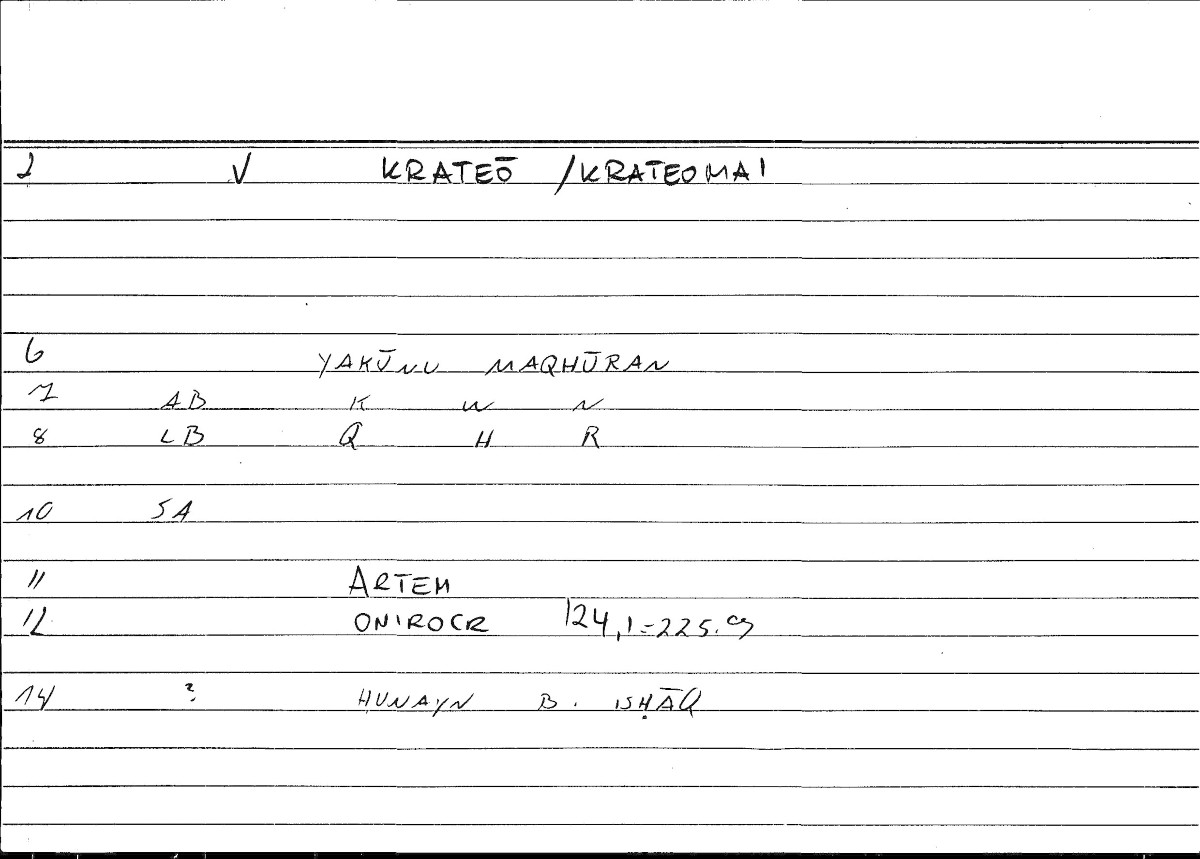 2 V KRATEŌ /KRATEOMAI
6 YAKŪNU MAQHŪRAN
7 AB K W N
8 LB Q H R
10 SA
11 ARTEM
12 ONIROCR 124,1=225.9
14 ? ḤUNAYN B. ISḤĀQ